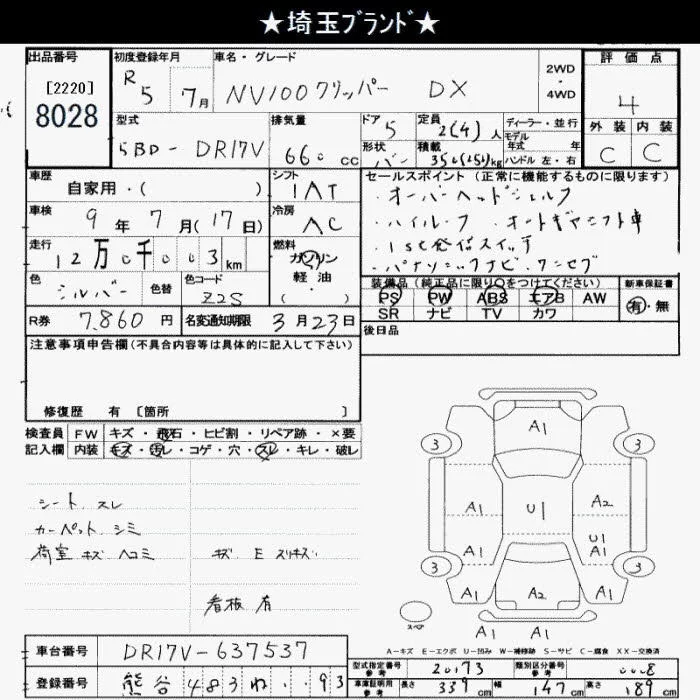 ★埼玉ブランド★
出品番号 初度登録年月 車名・グレード 評価点
[2220] 8028
R 5 7月 NV100クリッパー DX 2WD・4WD 4
型式 排気量 ドア 定員 ディーラー・並行 外装 内装
5BD-DR17V 660cc 5 2(4)人 モデル年式 年
形状 積載 ハンドル 左・右
バン 350(250)kg C C
車歴 シフト セールスポイント(正常に機能するものに限ります)
自家用・( ) IAT ・オーバーヘッドシェルフ
車検 冷房 ・ハイルーフ ・オートギヤシフト車
9年7月(17日) AC ・1st発進スイッチ
走行 燃料 ・パナソニックナビ・ワンセグ
12万0千003km ガソリン・軽油・( )
色 色替 色コード 装備品(純正品に限り○をつけてください) 新車保証書
シルバー Z2S PS PW ABS エアB AW 有・無
SR ナビ TV カワ
R券 7,860円 名変通知期限 3月23日 後日品
注意事項申告欄(不具合内容等は具体的に記入して下さい)
修復歴 有 [箇所 ]
検査員 FW キズ・飛石・ヒビ割・リペア跡・×要
記入欄 内装 キズ・汚レ・コゲ・穴・スレ・キレ・破レ
シート スレ
カーペット シミ
荷室 キズ ヘコミ キズ E スリキズ
看板 有
A1
3 3
A1 U1 A2
A1 U1 A1
3 3
A1 A2 A1
スペア
A1 A1
A-キズ E-エクボ U-凹み W-補修跡 S-サビ C-腐食 XX-交換済
車台番号 DR17V-637537
型式指定番号 参考 20173 類別区分番号 参考 0008
登録番号 熊谷 483 わ ・・93
車庫証明用 参考 長さ 339cm 幅 147cm 高さ 189cm